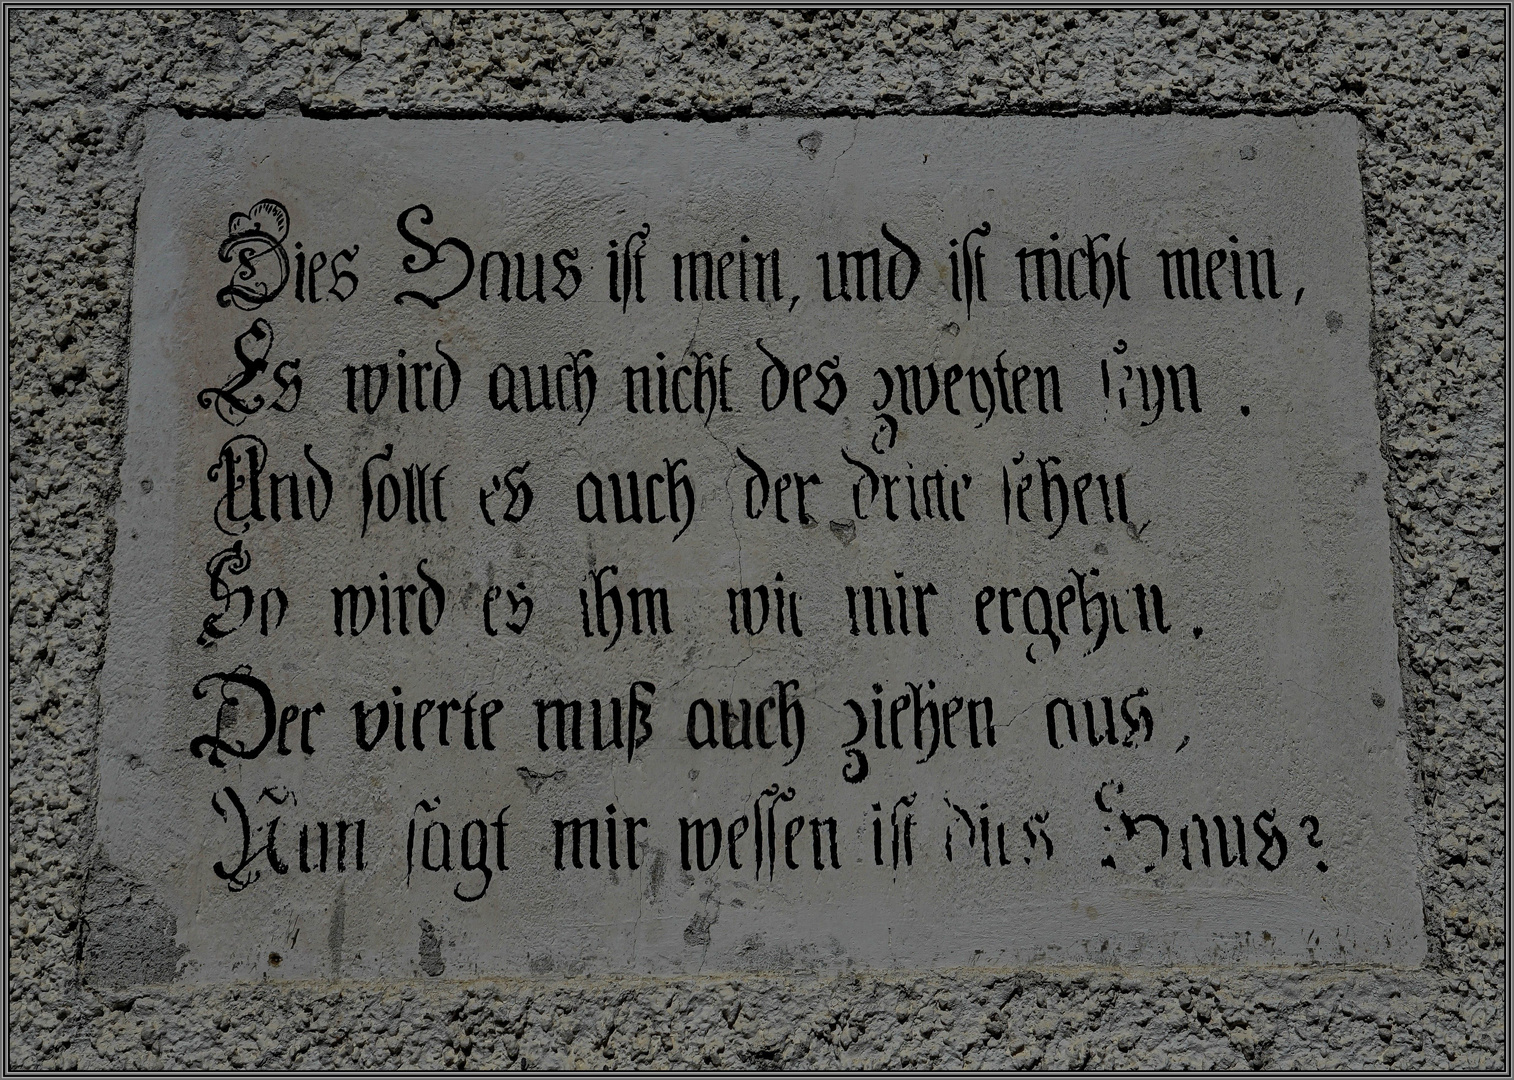 Dies Haus ist mein, und ist nicht mein,
Es wird auch nicht des zweyten seyn .
Und sollt es auch der dritte sehen
So wird es ihm wie mir ergehen .
Der vierte muß auch ziehen aus ,
Nun sagt mir wessen ist dies Haus?